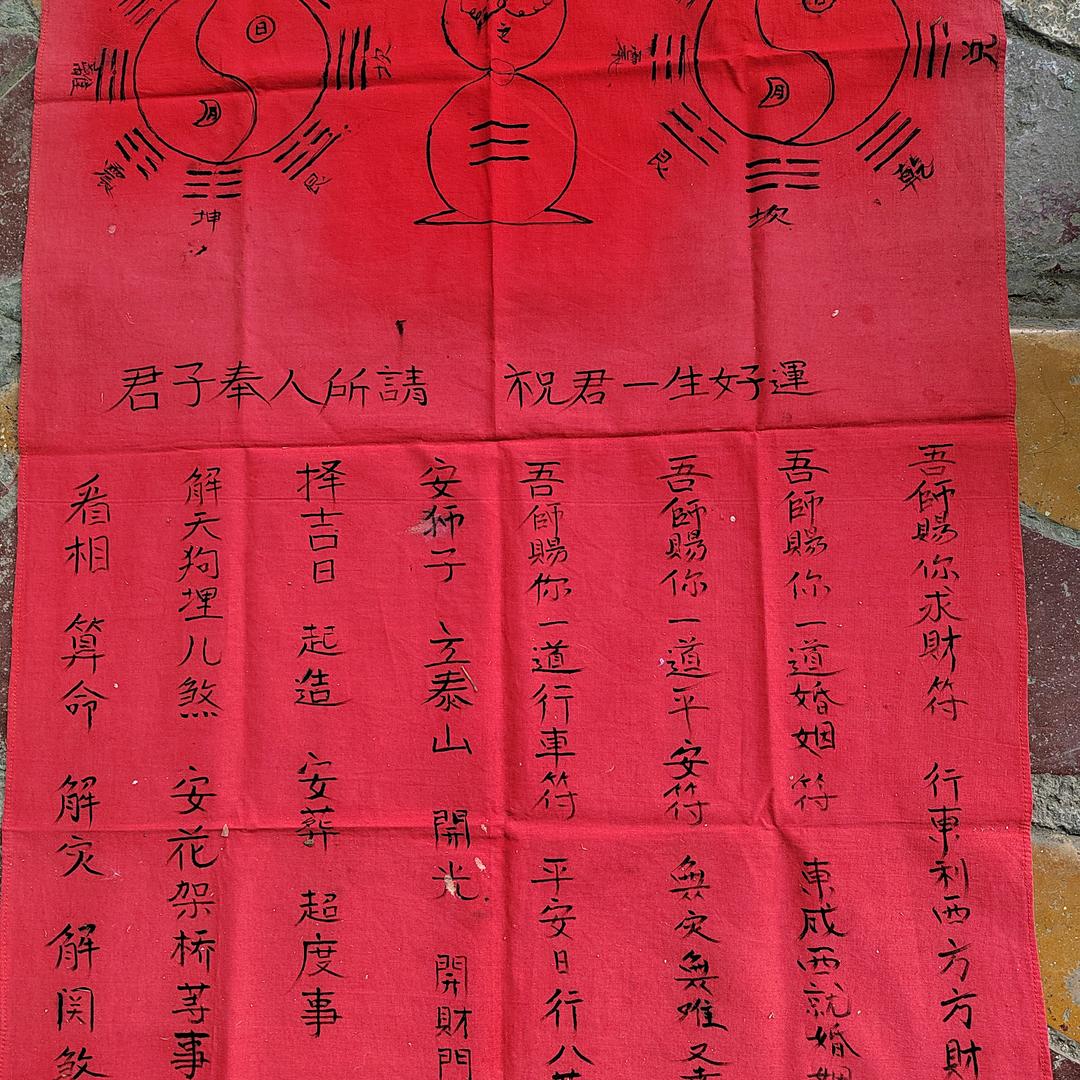 日
月
離
坎
震
艮
坤
之
日
月
兌
艮
乾
坎
君子奉人所請 祝君一生好運
吾師賜你求財符 行東利西方方財
吾師賜你一道婚姻符 東成西就婚姻
吾師賜你一道平安符 無灾無难又
吾師賜你一道行車符 平安日行八
安狮子 立泰山 開光 開財門
择吉日 起造 安葬 超度事
解天狗埋儿煞 安花架桥等事
看相 算命 解灾 解関煞